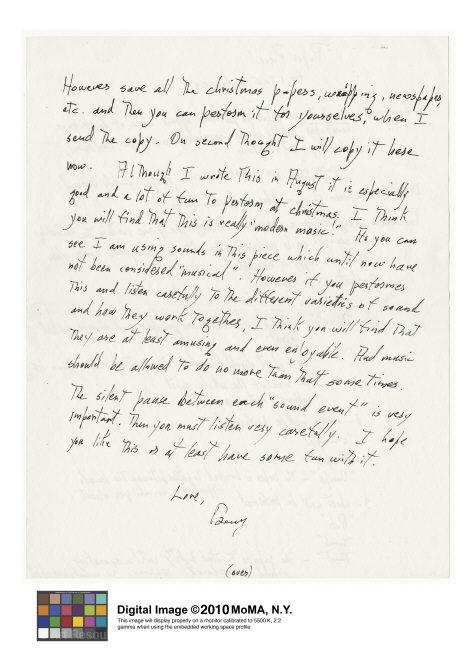 However save all the christmas papers, wrapping, newspaper,
etc. and then you can perform it for yourselves, when I
send the copy. On second thought I will copy it here
now. Although I wrote this in August it is especially
good and a lot of fun to perform at christmas. I think
you will find that this is really "modern music!" As you can
see I am using sounds in this piece which until now have
not been considered "musical". However if you performer
this and listen carefully to the different varieties of sound
and how they work together, I think you will find that
they are at least amusing and even enjoyable. And music
should be allowed to do no more than that some times.
The silent pause between each "sound event" is very
important. Then you must listen very carefully. I hope
you like this or at least have some fun with it.
Love,
(over)
Digital Image ©2010 MoMA, N.Y.
This image will display properly on a monitor calibrated to 5500 K, 2.2
gamma when using the embedded working space profile